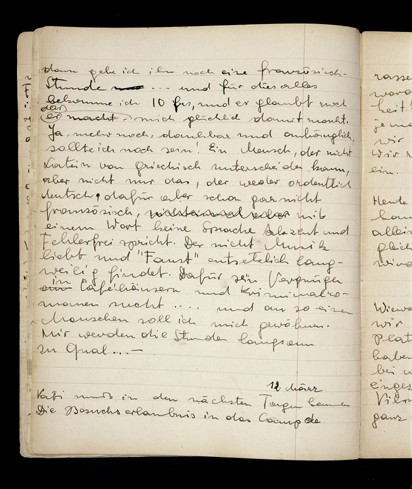 dann gebe ich ihm noch eine französisch-
Stunde ... und für dies alles
bekomme ich 10 frs, und er glaubt noch
das
er macht mich glücklich damit macht.
Ja, mehr noch, dankbar und anhänglich
sollte ich noch sein! Ein Mensch, der nicht
Latein von griechisch unterscheiden kann,
aber nicht nur das, der weder ordentlich
deutsch, dafür aber schon gar nicht
französisch, mit
einem Wort keine Sprache akzent und
fehlerfrei spricht. Der nicht Musik
liebt und "Faust" entsetzlich lang-
weilig findet. Dafür sein Vergnügen
in Caféhäusern und Kriminalro-
manen sucht .... und an so einen
Menschen soll ich mich gewöhnen.
Mir werden die Stunden langsam
zu Qual...-
12 März
Kati muss in den nächsten Tagen kommen
Die Besuchserlaubnis in das Camp de